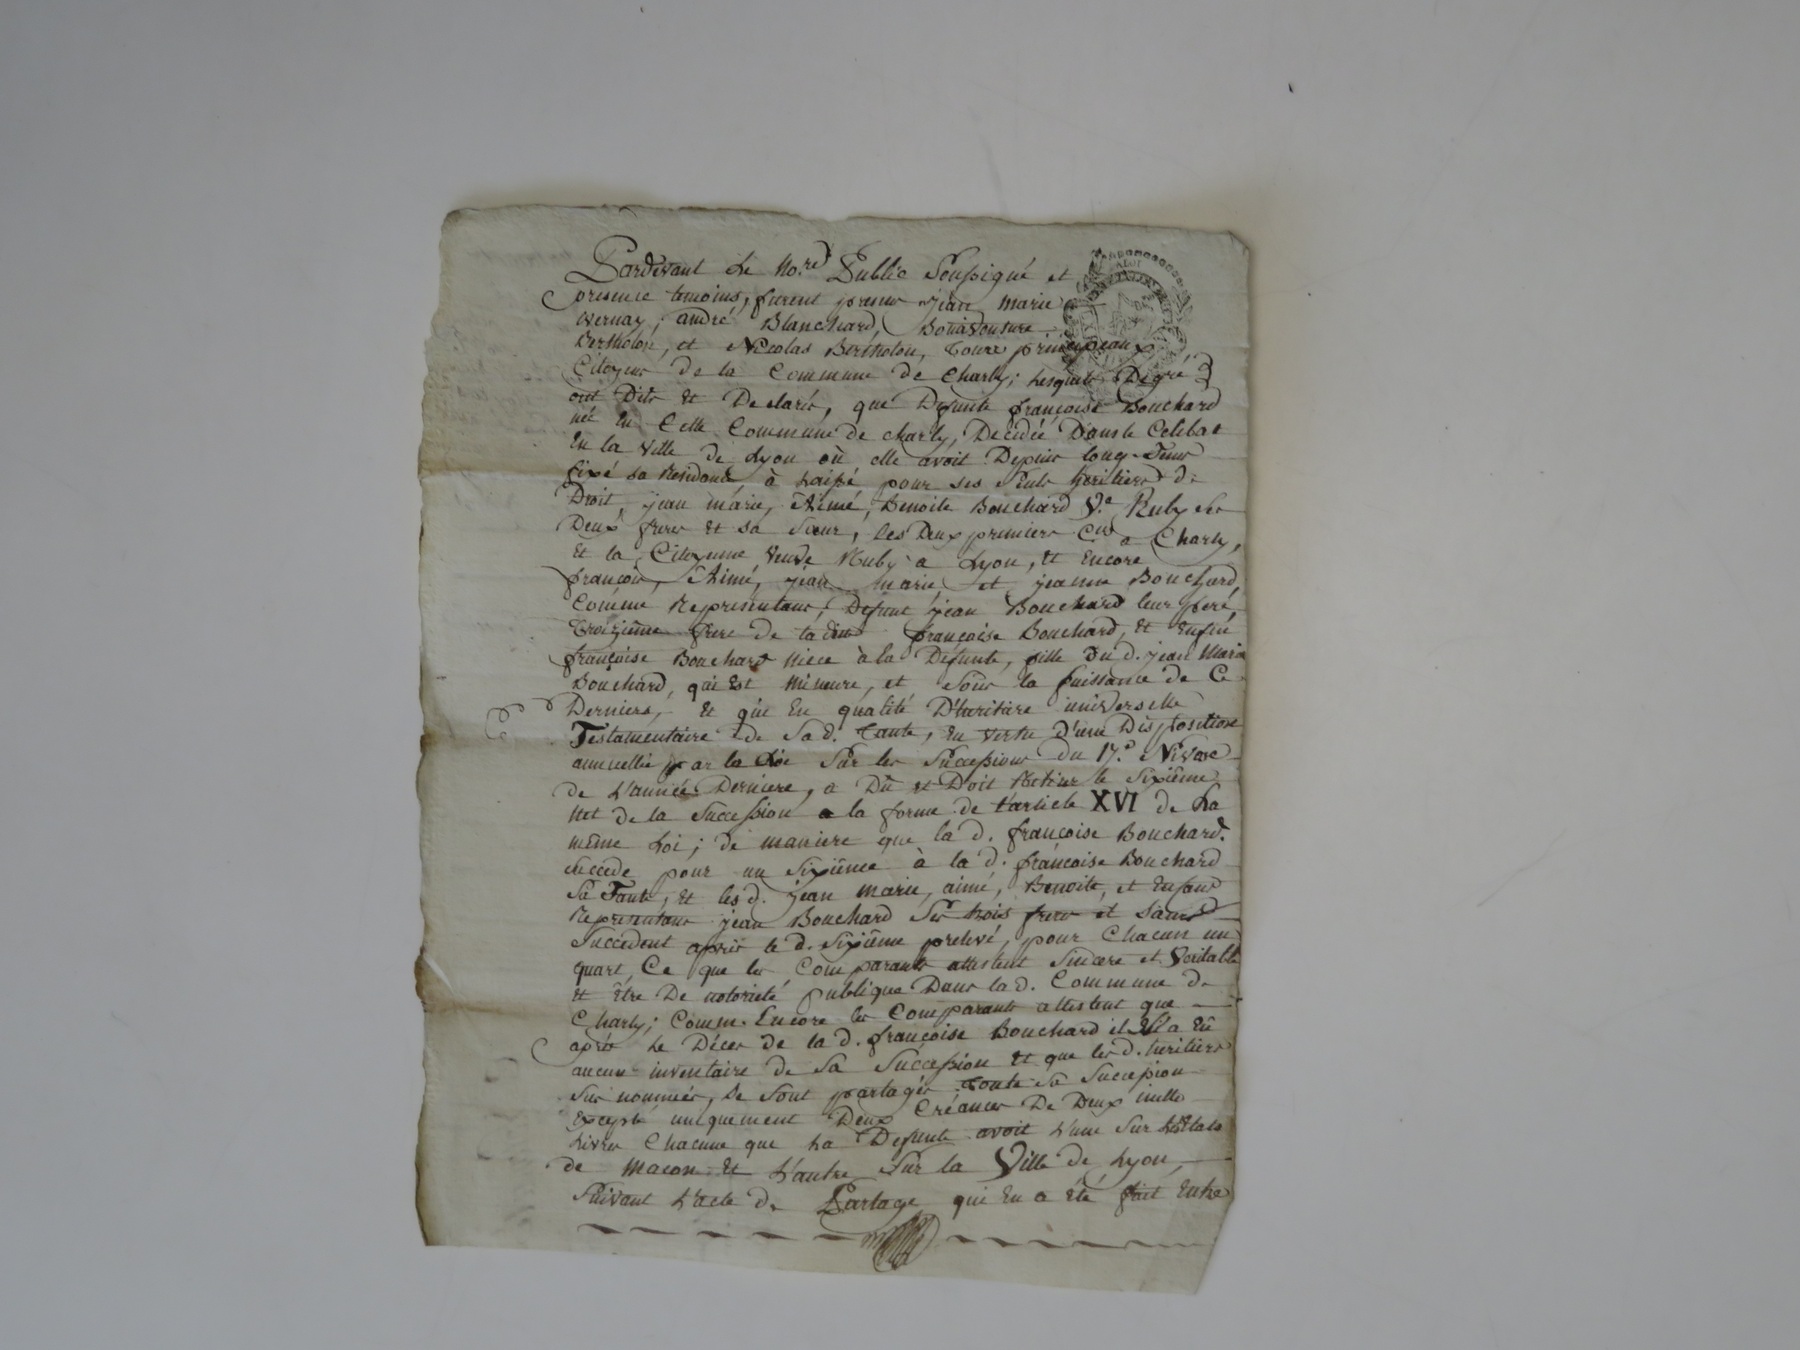 Pardevant Le No.re Public Soussigné et
presence temoins, furent presens jean marie
vernay, andré Blanchard, Bonaventure
Bertholon, et Nicolas Bertholon, tous principeaux
Citoyens de la Commune de Charly; Lesquels Degré
ont Dits et Declarés, que Defunte françoise Bouchard
née En Cette Commune de charly, Decedée Dans le Celibat
En la ville de Lyon où elle avoit Depuis long-Tems
fixé sa Residence, à Laissé pour ses seuls heritiers de
Droit, jean marie, Aimé, Benoite Bouchard V.e Ruby ses
Deux freres et sa sœur, les Deux premiers Cns a Charly,
et la Citoyenne veuve Ruby a Lyon, et Encore
françois, Aimé, jean marie, et jeanne Bouchard,
Comme Representans, Defunt jean Bouchard leur pere,
Troizième frere de ladite françoise Bouchard, et Enfin
françoise Bouchard Niece à la Defunte, fille Du d. jean Marie
Bouchard, qui Est Mineure, et sous la puissance de Ce
Derniers, et qui En qualité D'heritière universelle
Testamentaire de Sa d. Tante, En vertu d'une Disposition
annuellée par la Loi sur les Successions du 17.e Nivose
de L'année Derniere, a Dû et Doit Retenir le Sixième
Net de la Succession a la forme de l'article XVI de La
même Loi; de maniere que la d. françoise Bouchard
succede pour un Sixième à la d. françoise Bouchard
Sa Tante, et les d. jean marie, aimé, Benoite, et Enfans
Representans jean Bouchard Ses trois freres et sœurs
Succedent après le d. Sixième prelevé, pour Chacun un
quart, Ce que les Comparants attestent Sincere et Veritable
et être De notorieté publique Dans la d. Commune de
Charly; Comme Encore les Comparants attestent que
après Le Déces de la d. françoise Bouchard il N'a Eû
aucun inventaire de Sa Succession et que les d. heritiers
Sus nommés, Se Sont partagés toute Sa Succession
Excepté uniquement Deux Créances De Deux mille
Livres Chacune que La Defunte avoit L'une Sur Les Etats
de Macon et L'autre Sur la Ville de Lyon,
Suivant L'acte de Partage qui En a été fait Entre